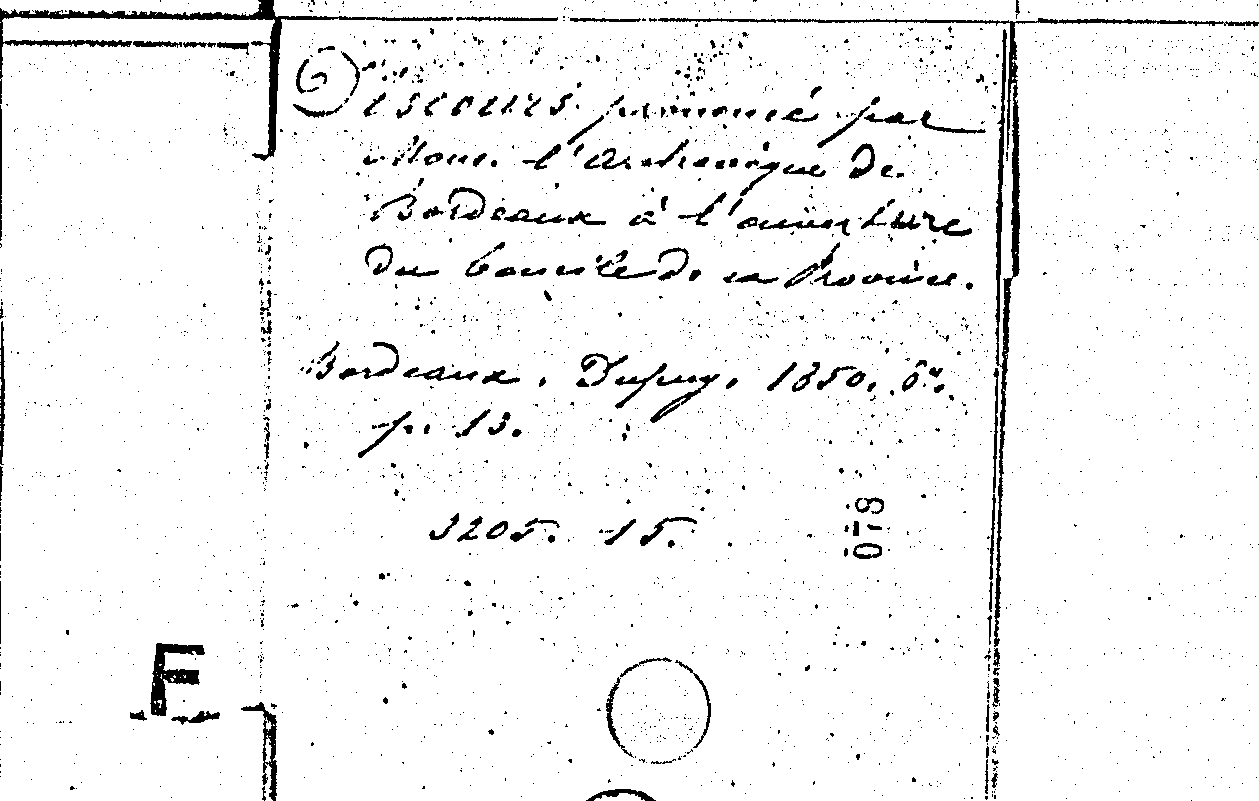 Discours prononcé par
Mons. l'Archevêque de
Bordeaux à l'ouverture
du Concile de sa Province.
Bordeaux. Dupuy. 1850. 8º.
p. 13.
3205. 15.
079
E